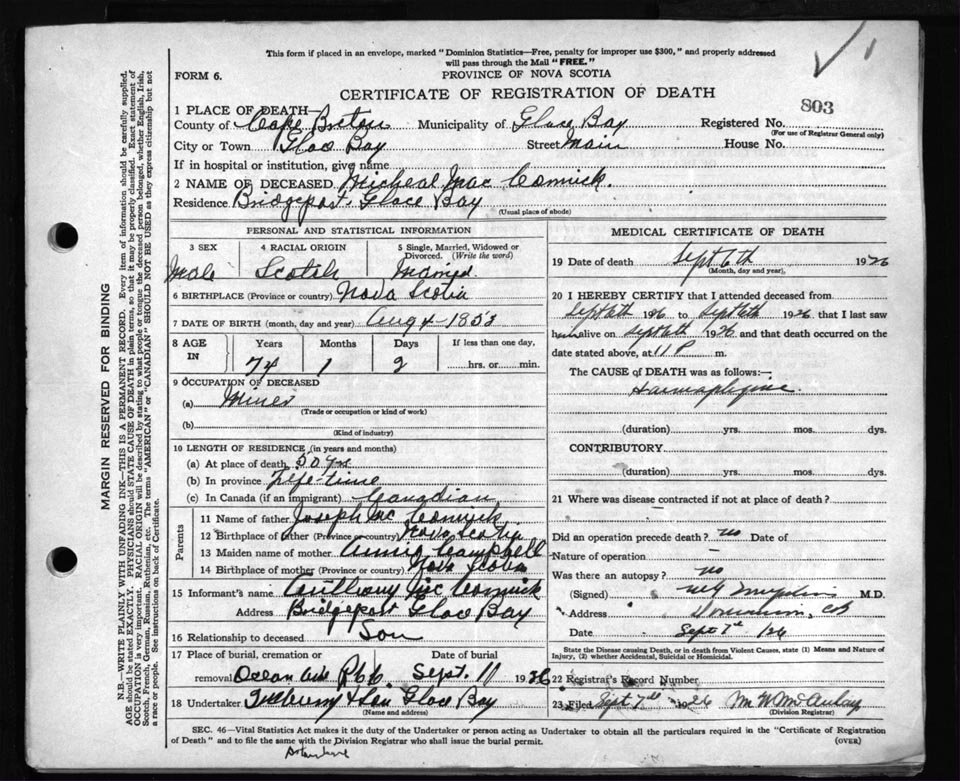 This form if placed in an envelope, marked "Dominion Statistics—Free, penalty for improper use $300," and properly addressed
will pass through the Mail "FREE."
FORM 6.
PROVINCE OF NOVA SCOTIA
CERTIFICATE OF REGISTRATION OF DEATH
803
1 PLACE OF DEATH—
County of Cape Breton Municipality of Glace Bay Registered No.
(For use of Registrar General only)
City or Town Glace Bay Street Main House No.
If in hospital or institution, give name
2 NAME OF DECEASED Micheal Mac Cormick.
Residence Bridgeport Glace Bay
(Usual place of abode)
PERSONAL AND STATISTICAL INFORMATION
3 SEX 4 RACIAL ORIGIN 5 Single, Married, Widowed or Divorced. (Write the word)
Male Scotch Married
6 BIRTHPLACE (Province or country) Nova Scotia
7 DATE OF BIRTH (month, day and year) Aug 4-1853
8 AGE IN Years Months Days If less than one day,
74 1 2 hrs. or min.
9 OCCUPATION OF DECEASED
(a) Miner
(Trade or occupation or kind of work)
(b)
(Kind of industry)
10 LENGTH OF RESIDENCE (in years and months)
(a) At place of death 50 yrs
(b) In province Life-time
(c) In Canada (if an immigrant) Canadian
Parents
11 Name of father Joseph Mc Cormick
12 Birthplace of father (Province or country) Nova Scotia
13 Maiden name of mother Annie Campbell
14 Birthplace of mother (Province or country) Nova Scotia
15 Informant's name Anthony Mc Cormick
Address Bridgeport Glace Bay
16 Relationship to deceased Son
17 Place of burial, cremation or removal Date of burial
Ocean Ave Sept. 11 1926
18 Undertaker & Son Glace Bay
(Name and address)
MEDICAL CERTIFICATE OF DEATH
19 Date of death Sept 6th 1926
(Month, day and year)
20 I HEREBY CERTIFY that I attended deceased from
Sept 6th 1926 to Sept 6th 1926, that I last saw
him alive on Sept 6th 1926 and that death occurred on the
date stated above, at 11 P m.
The CAUSE of DEATH was as follows:—
(duration) yrs. mos. dys.
CONTRIBUTORY
(duration) yrs. mos. dys.
21 Where was disease contracted if not at place of death?
Did an operation precede death? no Date of
Nature of operation —
Was there an autopsy? no
(Signed) M.D.
Address Dominion, CB
Date Sept 7th /26
State the Disease causing Death, or in death from Violent Causes, state (1) Means and Nature of
Injury, (2) whether Accidental, Suicidal or Homicidal.
22 Registrar's Record Number
23 Filed Sept 7th 1926 M W McAulay
(Division Registrar)
SEC. 46—Vital Statistics Act makes it the duty of the Undertaker or person acting as Undertaker to obtain all the particulars required in the "Certificate of Registration
of Death" and to file the same with the Division Registrar who shall issue the burial permit.
(OVER)
MARGIN RESERVED FOR BINDING
N.B.—WRITE PLAINLY WITH UNFADING INK—THIS IS A PERMANENT RECORD. Every item of information should be carefully supplied.
AGE should be stated EXACTLY. PHYSICIANS should STATE CAUSE OF DEATH in plain terms, so that it may be properly classified. Exact statement of
OCCUPATION is very important. RACIAL ORIGIN will be described by stating to what people or tongue the deceased person belonged, whether English, Irish,
Scotch, French, German, Russian, Ruthenian, etc. The terms "AMERICAN" or "CANADIAN" SHOULD NOT BE USED as they express citizenship but not
a race or people. See instructions on back of Certificate.